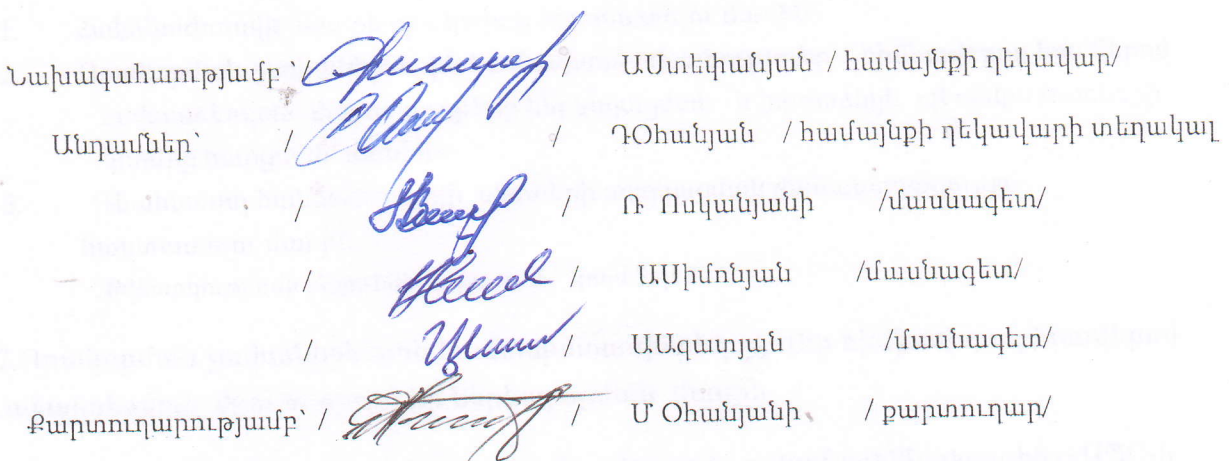 Նախագահաությամբ՝ / / ԱՍտեփանյան / համայնքի ղեկավար/
Անդամներ՝ / / ԴՕհանյան / համայնքի ղեկավարի տեղակալ
/ / Ռ Ոսկանյանի /մասնագետ/
/ / ԱՍիմոնյան /մասնագետ/
/ / ԱԱզատյան /մասնագետ/
Քարտուղարությամբ՝ / / Մ Օհանյանի / քարտուղար/